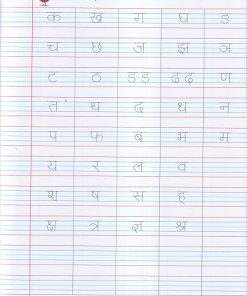 क ख ग घ ङ
च छ ज झ ञ
ट ठ ड ड़ ढ ढ़ ण
त थ द ध न
प फ ब भ म
य र ल व
श ष स ह
क्ष त्र ज्ञ श्र